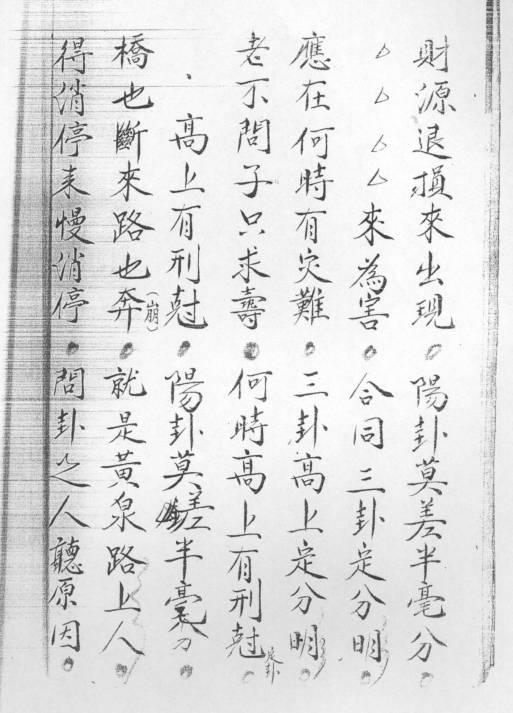 財源退損來出現。陽卦莫差半毫分。
△△△△來為害。合同三卦定分明。
應在何時有灾難。三卦高上定分明。
老不問子只求壽。何時高上有刑尅。
、高上有刑尅。陽卦莫差半毫分
橋也斷來路也奔(崩)。就是黃泉路上人。
得消停來慢消停。問卦之人聽原因。